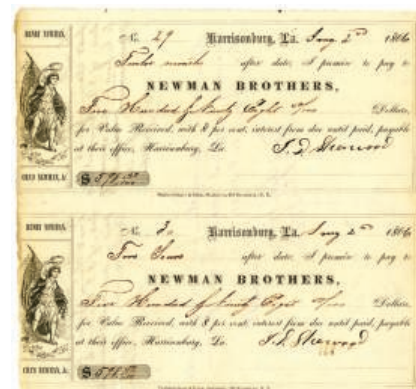 HENRY NEWMAN,
No. 29 Harrisonburg, La. Jany 2nd 1866
Twelve months after date, I promise to pay to
NEWMAN BROTHERS,
Five Hundred & Seventy Eight Dollars,
for Value Received, with 8 per cent. interest from due until paid, payable
at their office, Harrisonburg, La.
CHAS NEWMAN,
$ 578
HENRY NEWMAN,
No. 30 Harrisonburg, La. Jany 2nd 1866
Two Years after date, I promise to pay to
NEWMAN BROTHERS,
Five Hundred & Seventy Eight Dollars,
for Value Received, with 8 per cent. interest from due until paid, payable
at their office, Harrisonburg, La.
CHAS NEWMAN,
$ 578